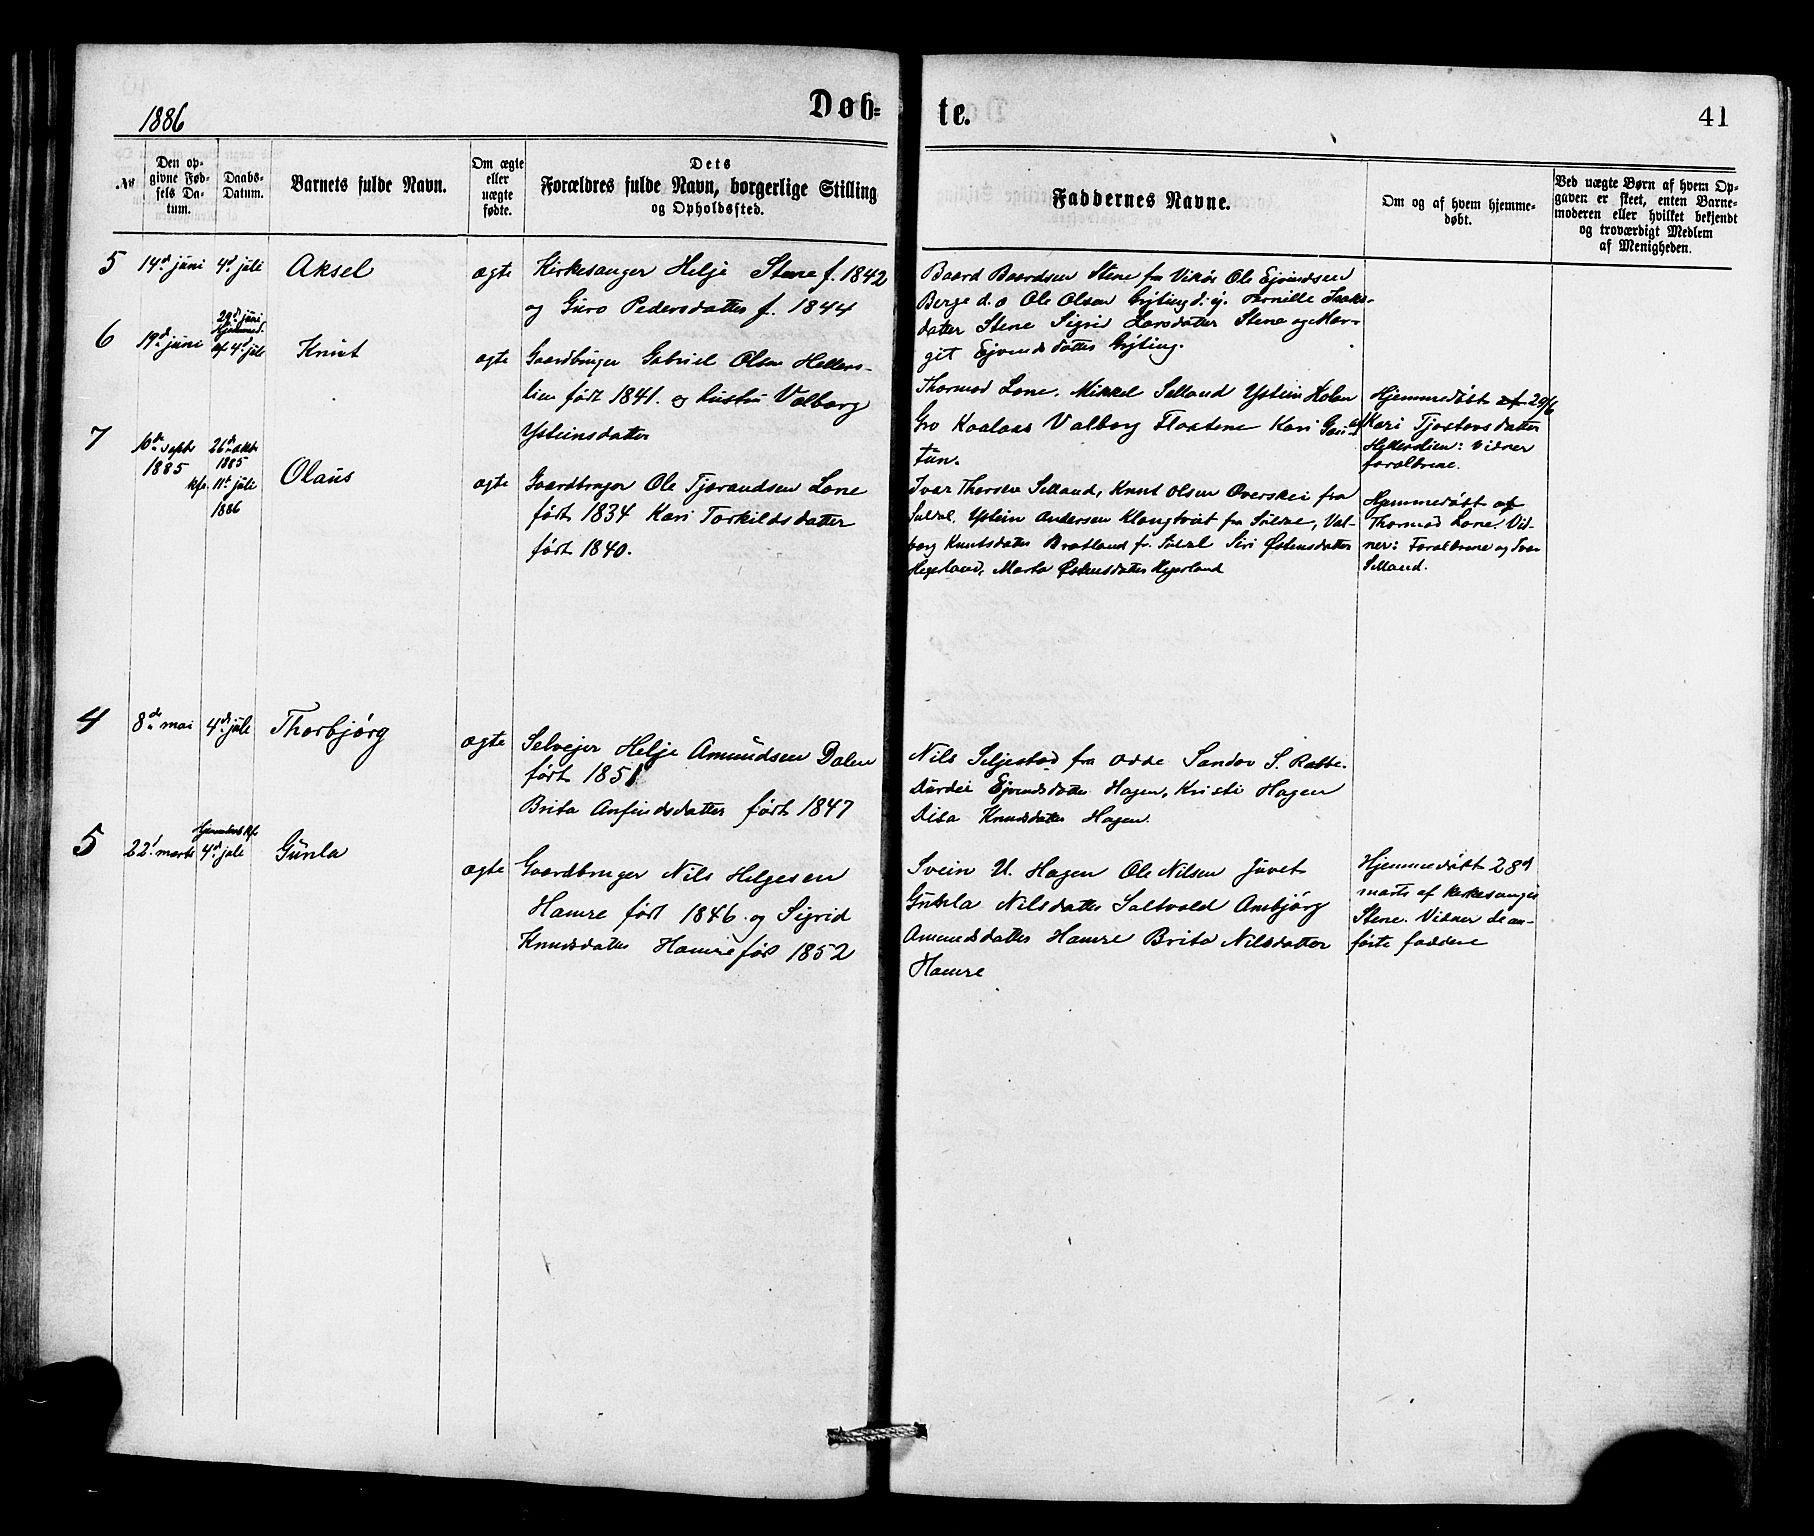 1886
Døb-
te.
41
No
Den op-
givne Fød-
sels Da-
tum.
Daabs-
Datum.
Barnets fulde Navn.
Om ægte
eller
uægte
fødte.
Dets
Forældres fulde Navn, borgerlige Stilling
og Opholdssted.
Faddernes Navne.
Om og af hvem hjemme-
døbt.
Ved uægte Børn af hvem Op-
gaven er skeet, enten Barne-
moderen eller hvilket bekjendt
og troværdigt Medlem
af Menigheden.
5
14d juni
4d juli
Aksel
ægte
Kirkesanger Helje Stene f. 1842
og Guro Pedersdatter f. 1844
Baard Baardsen Stene fra Vikør Ole Ejvindsen
Berge d. o Ole Olsen Grjting d. ej. Pernille Isaks-
datter Stene Sigrid Larsdatter Stene og Mar-
git Ejvindsdatter Grjting.
6
19d juni
29d juni
Hjemmed.
4d juli
Knut
ægte
Gaardbruger Gabriel Olsen Hellers-
lien født 1841. og hustru Valborg
Ysteinsdatter
Thormod Lone. Mikkel Selland Ystein Kolen
Gro Kaalaas Valborg Flaatene Kari Gaard-
tun.
Hjemmedøbt 29/6
Kari Tjostovsdatter
Hellerslien: Vidner
forældrene.
7
10de septbr
1885
26de oktbr
1885
11t juli
1886
Olaus
ægte
Gaardbruger Ole Tjerandsen Lone
født 1834 Kari Torkildsdatter
født 1840.
Ivar Thorsen Selland, Knut Olsen Overskei fra
Suldal, Ystein Andersen Klungtveit fra Suldal, Val-
borg Knutsdatter Bratland fr. Suldal Siri Østensdatter
Hegerland, Marta Østensdatter Hegerland
Hjemmedøbt af
Thormod Lone. Vid-
ner: Forældrene og Ivar
Selland.
4
8de mai
4de juli
Thorbjørg
ægte
Selvejer Helje Amundsen Dalen
født 1851
Brita Anfindsdatter født 1847
Nils Seljestad fra Odde Sandov S. Rabbe.
Durdei Ejvindsdatter Hagen, Kristi Hagen
Disa Knudsdatter Hagen.
5
22d marts
4d juli
Gunla
ægte
Gaardbruger Nils Helgesen
Hamre født 1846. og Sigrid
Knudsdatter Hamre født 1852
Svein U. Hagen Ole Nilsen Juvet
Gunla Nilsdatter Saltvold Anbjørg
Amundsdatter Hamre Brita Nilsdatter
Hamre
Hjemmedøbt 28d
marts af Kirkesanger
Stene. Vidner de an-
førte faddere